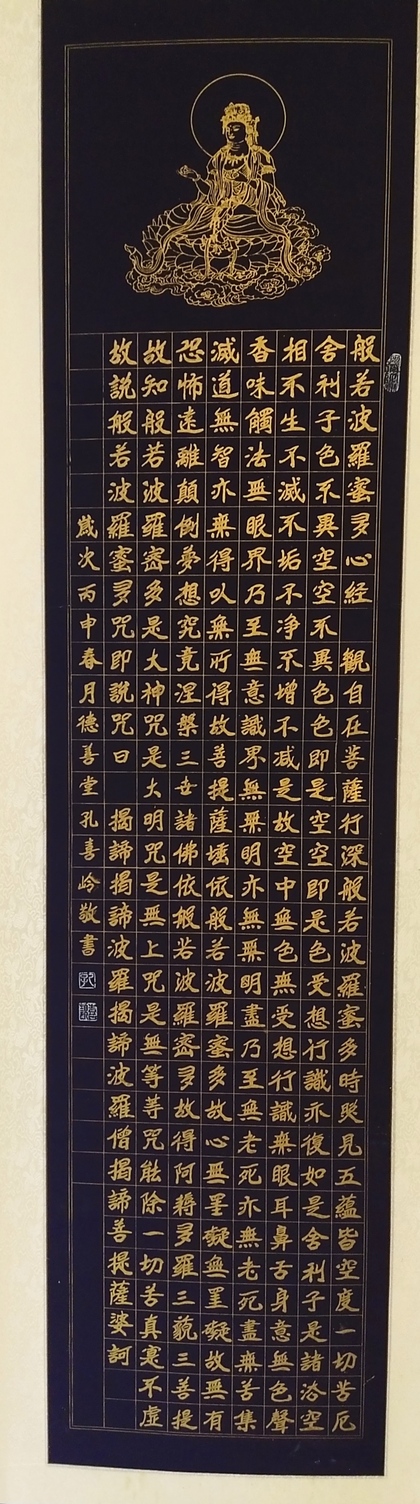 般若波羅蜜多心経 觀自在菩薩行深般若波羅蜜多時照見五蘊皆空度一切苦厄
舍利子色不異空空不異色色即是空空即是色受想行識亦復如是舍利子是諸法空
相不生不滅不垢不净不增不减是故空中無色無受想行識無眼耳鼻舌身意無色聲
香味觸法無眼界乃至無意識界無無明亦無無明盡乃至無老死亦無老死盡無苦集
滅道無智亦無得以無所得故菩提薩埵依般若波羅蜜多故心無罣礙無罣礙故無有
恐怖遠離顛倒夢想究竟涅槃三世諸佛依般若波羅蜜多故得阿耨多羅三藐三菩提
故知般若波羅蜜多是大神咒是大明咒是無上咒是無等等咒能除一切苦真寔不虛
故說般若波羅蜜多咒即說咒曰 揭諦揭諦波羅揭諦波羅僧揭諦菩提薩婆訶
歲次丙申春月德善堂孔喜岭敬書